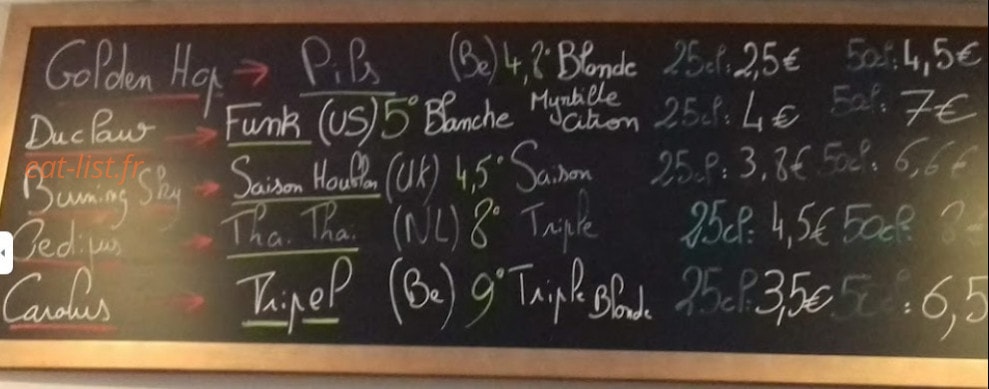 Golden Hop → Pils (Be) 4,8° Blonde 25cl: 2,5€ 50cl: 4,5€
Duclaw → Funk (US) 5° Blanche Myrtille citron 25cl: 4€ 50cl: 7€
eat-list.fr
Burning Sky → Saison Houblon (UK) 4,5° Saison 25cl: 3,8€ 50cl: 6,6€
Oedipus → Tha. Tha. (NL) 8° Triple 25cl: 4,5€ 50cl: 8€
Carolus → Tripel (Be) 9° Triple Blonde 25cl: 3,5€ 50cl: 6,5